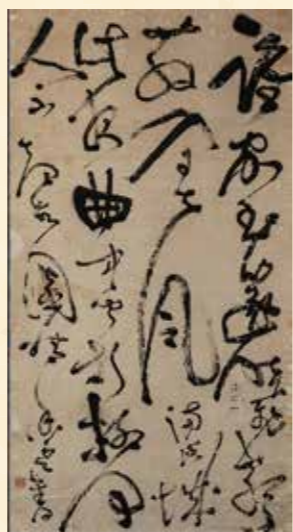 誰家玉笛暗飛聲
散入春風滿洛城
此夜曲中聞折柳何
人不起故園情